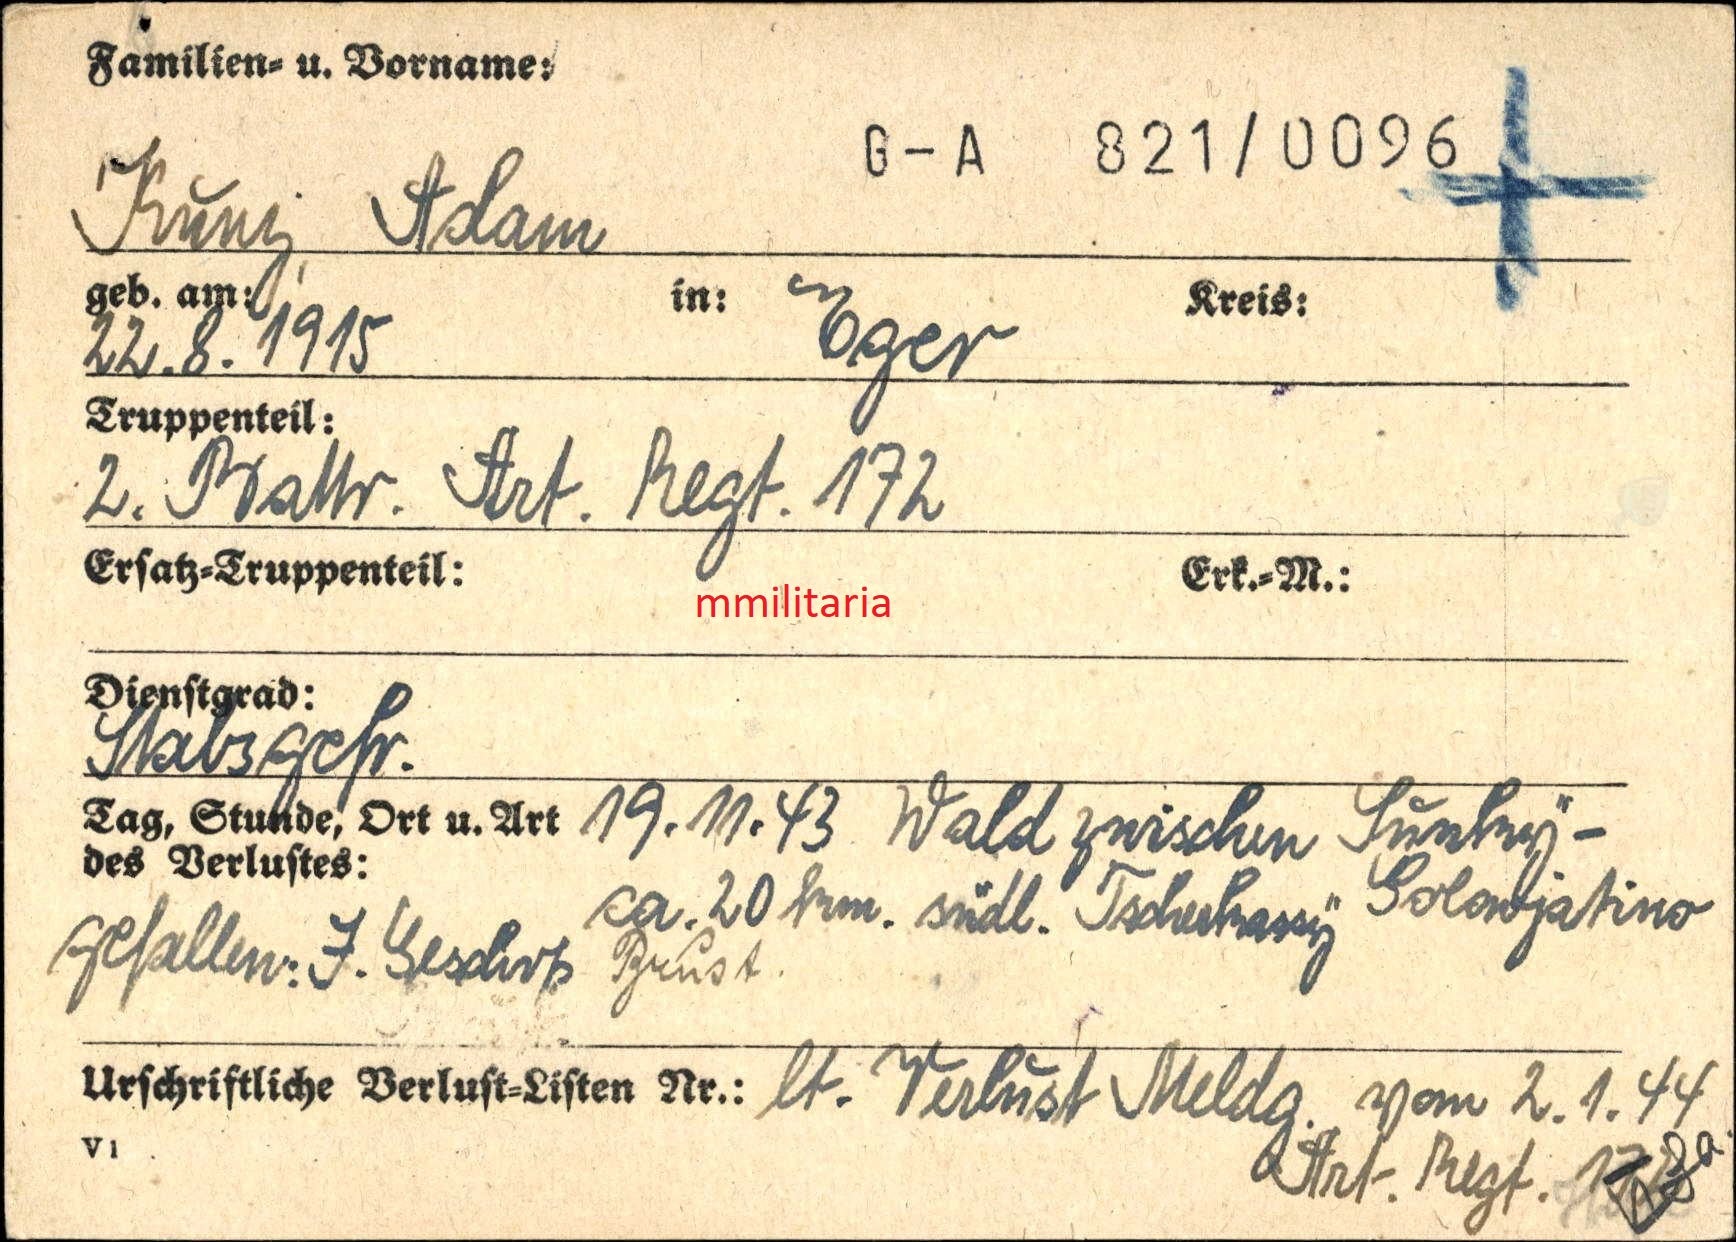 Familien- u. Vorname:
G-A 821/0096
Kunz Adam
geb. am: in: Kreis:
22.8.1915 Eger
Truppenteil:
2. Battr. Art. Regt. 172
Ersatz-Truppenteil: Erk.-M.:
mmilitaria
Dienstgrad:
Stabsgefr.
Tag, Stunde, Ort u. Art 19.11.43 Wald zwischen
des Verlustes:
ca. 20 km. südl. Tscherkassÿ Golowjatino
gefallen: J. Geschoß Brust.
Urschriftliche Verlust-Listen Nr.: lt. Verlust Meldg. vom 2.1.44
V 1
Art. Regt.